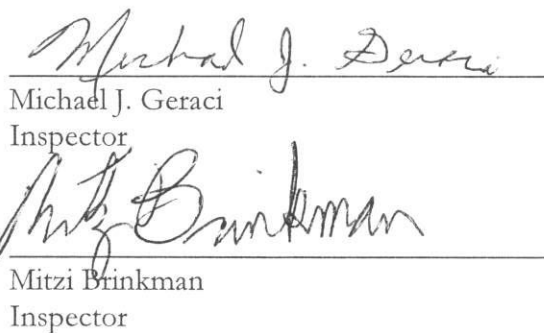 Michael J. Geraci
Michael J. Geraci
Inspector
Mitzi Brinkman
Mitzi Brinkman
Inspector